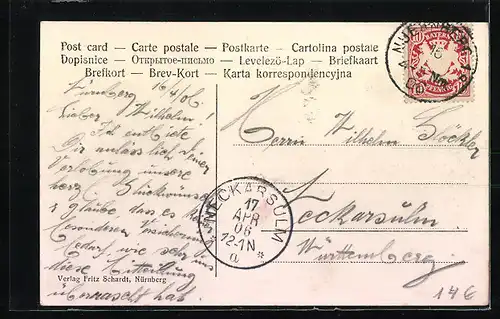 Post card — Carte postale — Postkarte — Cartolina postale
Dopisnice — Открытое-письмо — Levelező-Lap — Briefkaart
Brefkort — Brev-Kort — Karta korrespondencyjna
NUERNBERG
BAYERN
10
PFENNIG
Nürnberg 16/4/06
Lieber Wilhelm!
Ich entbiete
Dir anlässlich Deiner
Verlobung unsere
herzl. Glückwünsche
glaube, dass es k
besonderen Versicherung
bedarf, wie sehr uns
diese Mitteilung
überrascht hat.
Herrn Wilhelm
Neckarsulm
Württemberg.
NECKARSULM
17
APR
06
12-1N
a *
Verlag Fritz Schardt, Nürnberg
14€